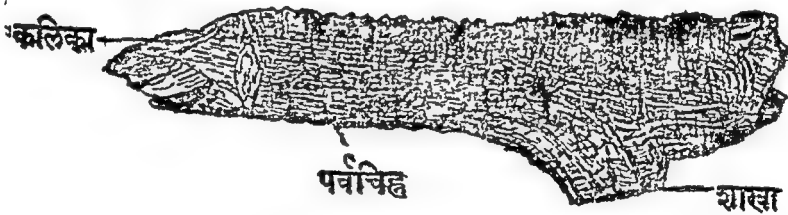 कलिका
पर्वचिह्न
शाखा